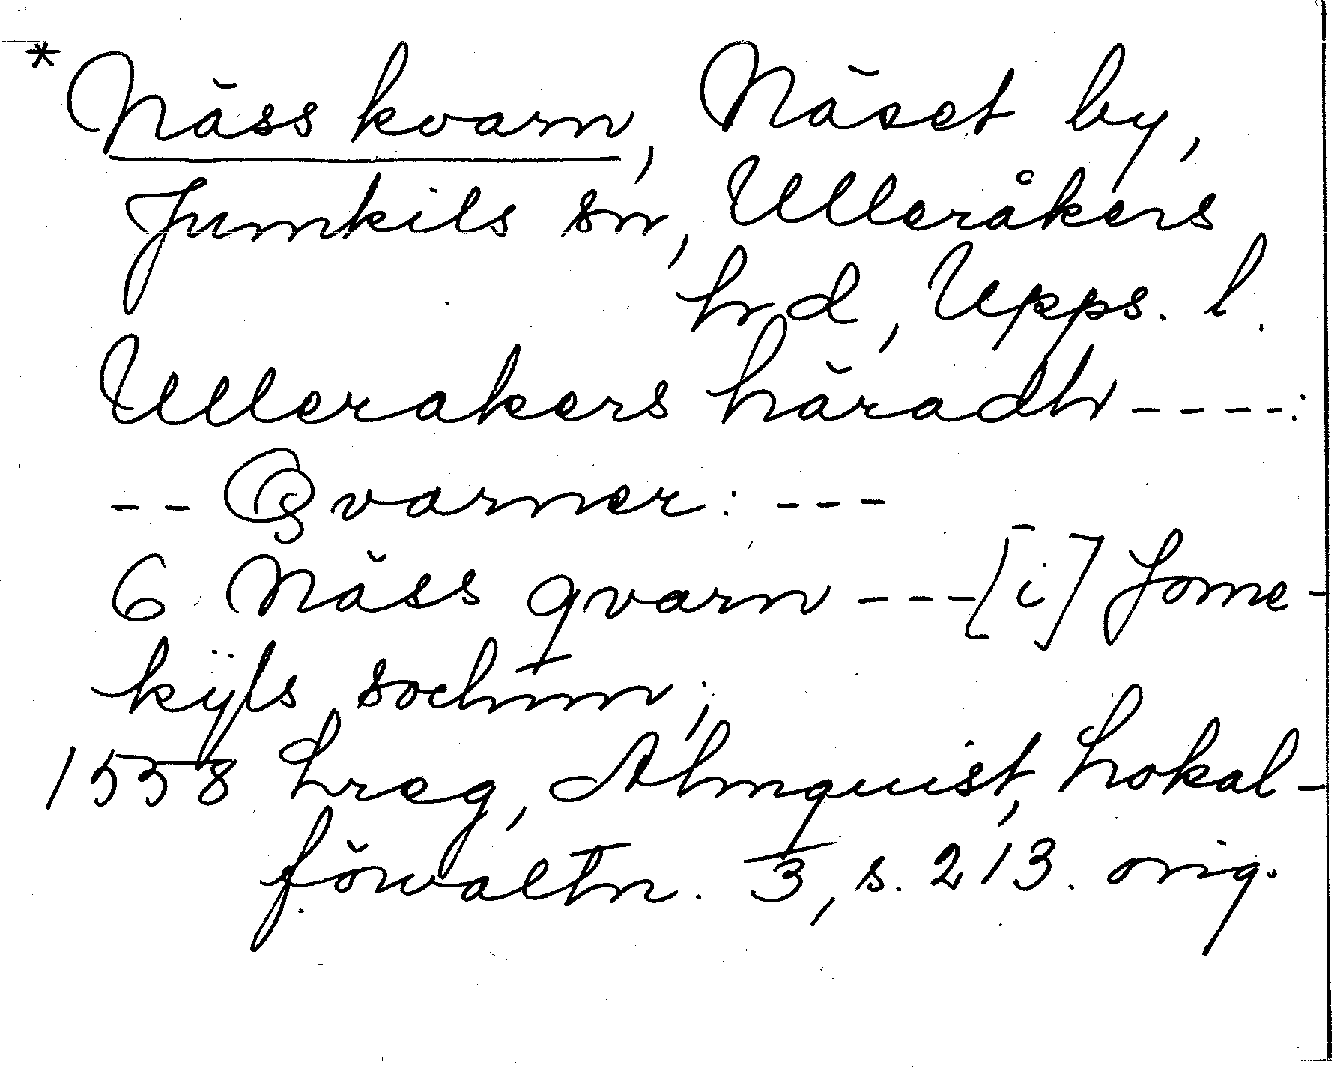 *Näss kvarn, Näset by,
Jumkils sn, Ulleråkers
hd, Upps. l.
Ullerakers häradh ----:
-- Qvarner: ---
6 Näss qvarn ---[i] Jome-
kÿls sochnn;
1558 hreg, Almquist, Lokal-
förvaltn. 3, s. 213. orig.